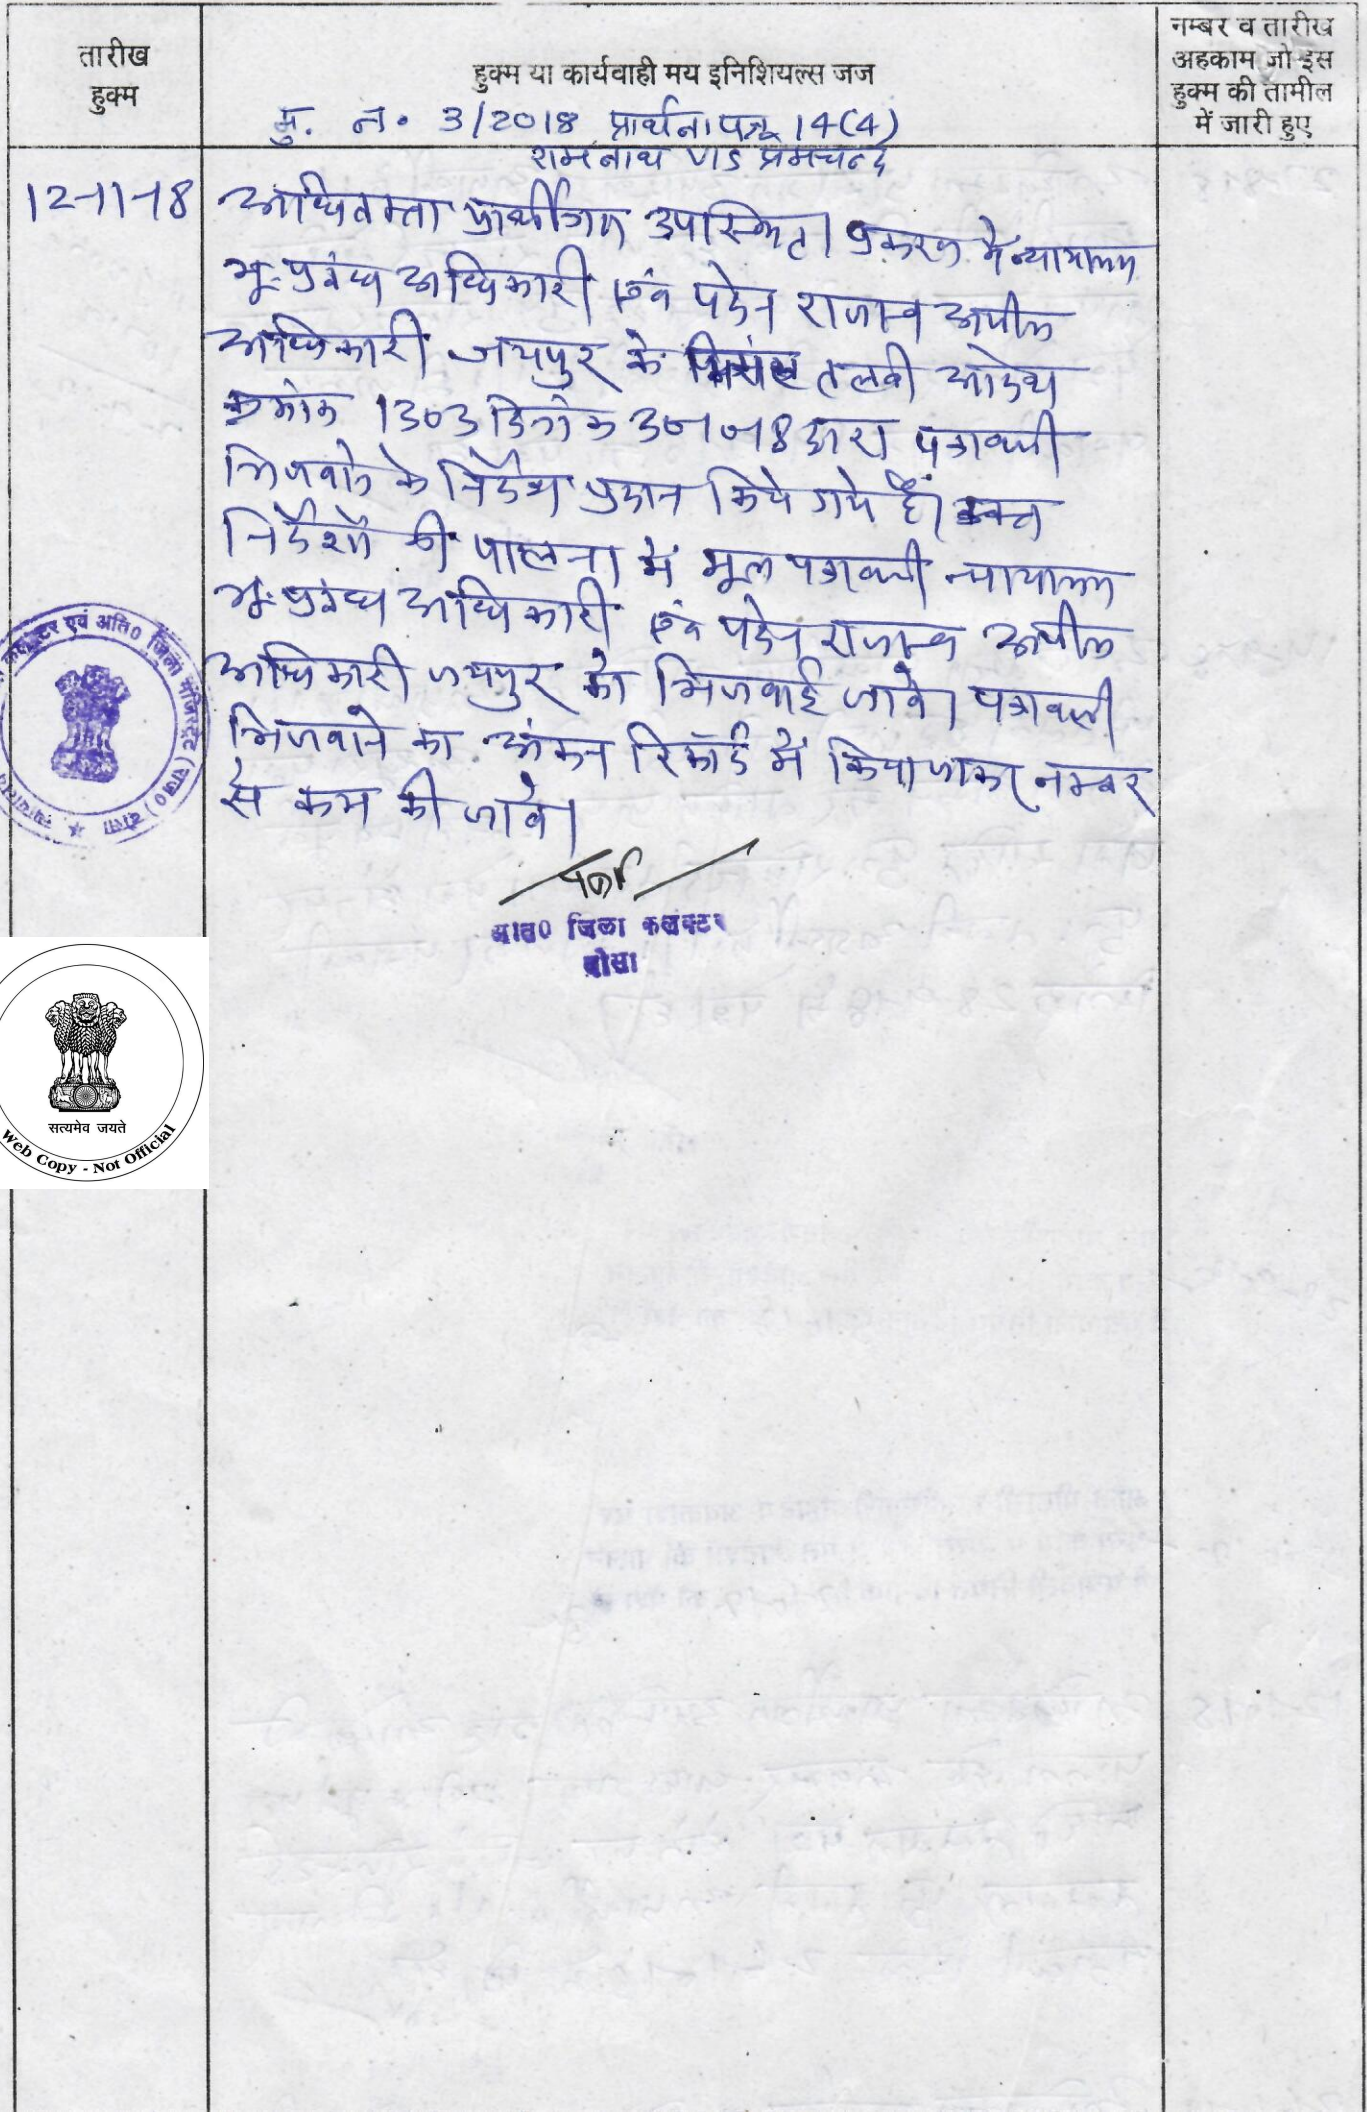 तारीख
हुक्म
हुक्म या कार्यवाही मय इनिशियल्स जज
नम्बर व तारीख
अहकाम जो इस
हुक्म की तामील
में जारी हुए
मु. न. 3/2018 प्रार्थना पत्र 14(4)
रामनाथ V/S प्रेमचन्द
12-11-18
अधिवक्ता प्रार्थीगण उपस्थित। प्रकरण में न्यायालय
भू-प्रबंध अधिकारी एवं पदेन राजस्व अपील
अधिकारी जयपुर के तलबी आदेश
क्रमांक 1303 दिनांक द्वारा पत्रावली
भिजवाने के निर्देश प्रदान किये गये हैं। उक्त
निर्देशों की पालना में मूल पत्रावली न्यायालय
भू-प्रबंध अधिकारी एवं पदेन राजस्व अपील
अधिकारी जयपुर को भिजवाई जावे। पत्रावली
भिजवाने का अंकन रिकॉर्ड में किया जाकर नम्बर
से कम की जावे।
अति0 जिला कलक्टर
दौसा
कलक्टर एवं अति0 जिला मजिस्ट्रेट (राज0) दौसा
सत्यमेव जयते
Web Copy - Not Official